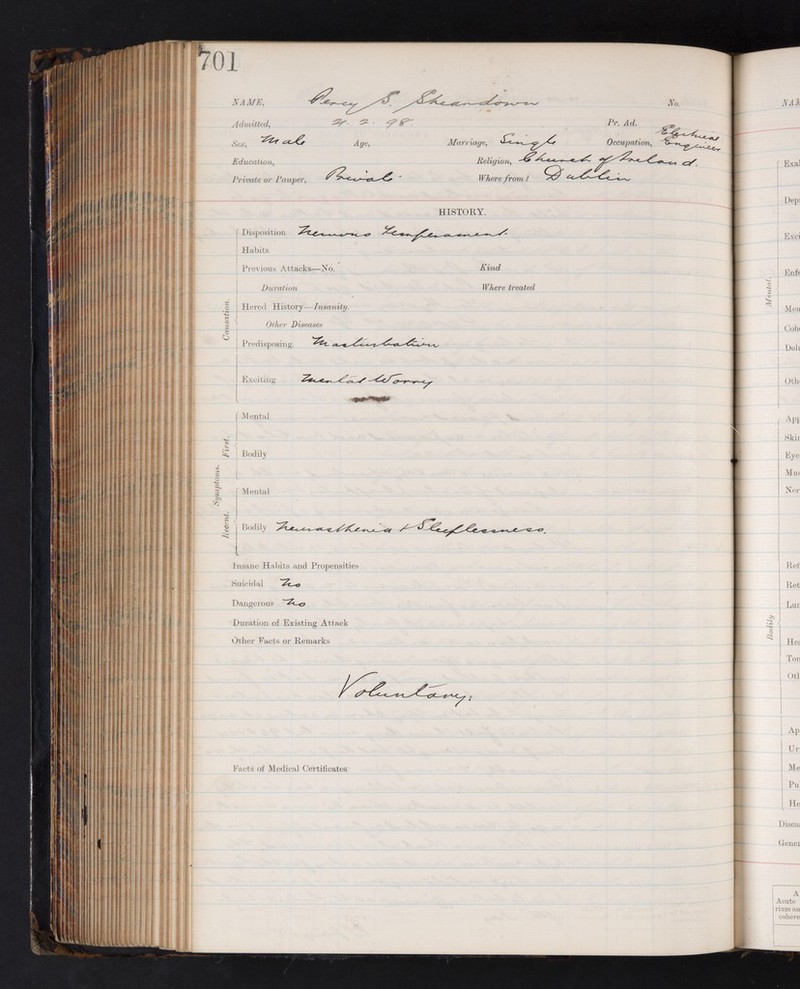 701
NAME, Percy S. Sheardown No.
Admitted, 2. 98. Pr. Ad.
Sex, Male Age, Marriage, Single Occupation, Electrical Engineer
Education, Religion, Church of Ireland.
Private or Pauper, Private. Where from? Dublin
HISTORY.
Causation.
Disposition Nervous Temperament.
Habits
Previous Attacks—No. Kind
Duration Where treated
Hered. History—Insanity.
Other Diseases
Predisposing. Masturbation
Exciting Mental Worry
Symptoms.
First.
Mental
Bodily
Recent.
Mental
Bodily Neurasthenia & Sleeplessness.
Insane Habits and Propensities
Suicidal No
Dangerous No
Duration of Existing Attack
Other Facts or Remarks
Voluntary.
Facts of Medical Certificates
NA
Mental.
Exal
Dep
Exci
Enfe
Men
Cohe
Delu
Oth
Bodily
App
Skin
Eye
Mus
Ner
Ref
Ret
Lun
Hea
Ton
Oth
Ap
Ur
Me
Pu
He
Disea
Gener
A
Acute
rium an
cohere